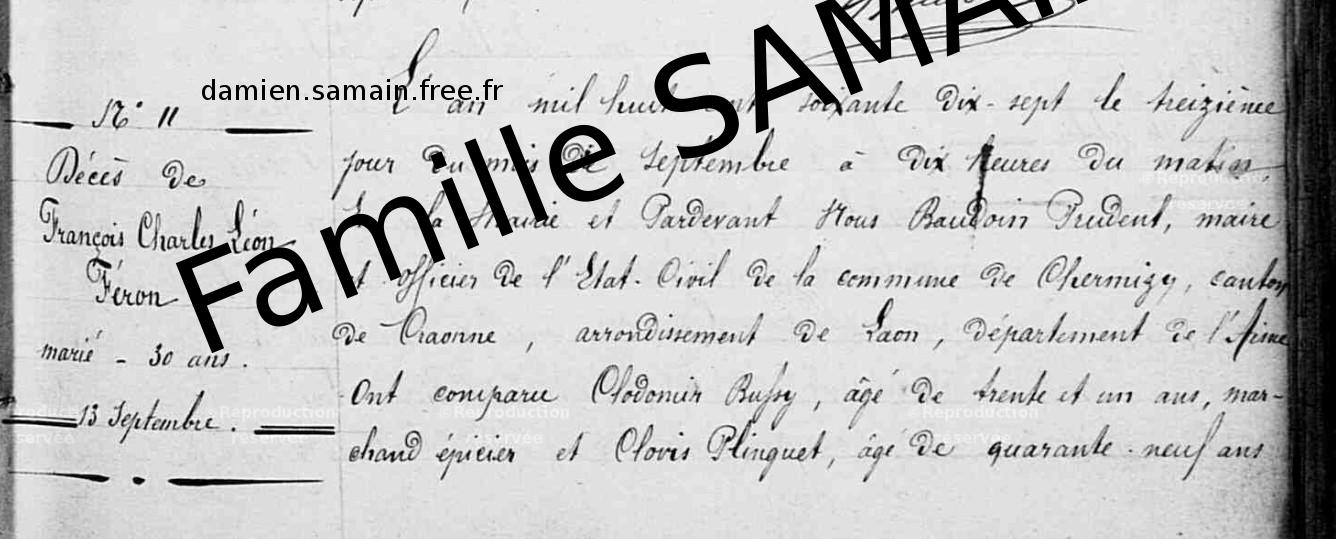 damien.samain.free.fr
Famille SAMAI
N° 11
Décès de
François Charles Léon
Féron
marié - 30 ans.
13 Septembre.
L'an mil huit cent soixante dix-sept le treizième
jour du mois de Septembre à dix heures du matin,
à la Mairie et Pardevant Nous Baudoin Prudent, maire
et officier de l'Etat-Civil de la commune de Chermizy, canton
de Craonne, arrondissement de Laon, département de l'Aisne
Ont comparu Clodomir Bussy, âgé de trente et un ans, mar-
chand épicier et Clovis Plinguet, âgé de quarante-neuf ans
©Reproduction
réservée
©Reproduction
réservée
©Reproduction
réservée
©Reproduction
réservée
©Reproduction
réservée